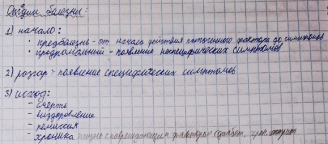 Стадии болезни:
1) начало:
- предболезнь - от начала действия патогенного фактора до симптомов
- продромальный - появления неспецифических симптомов
2) разгар - появление специфических симптомов
3) исход:
- смерть
- выздоровление
- ремиссия
- хроника